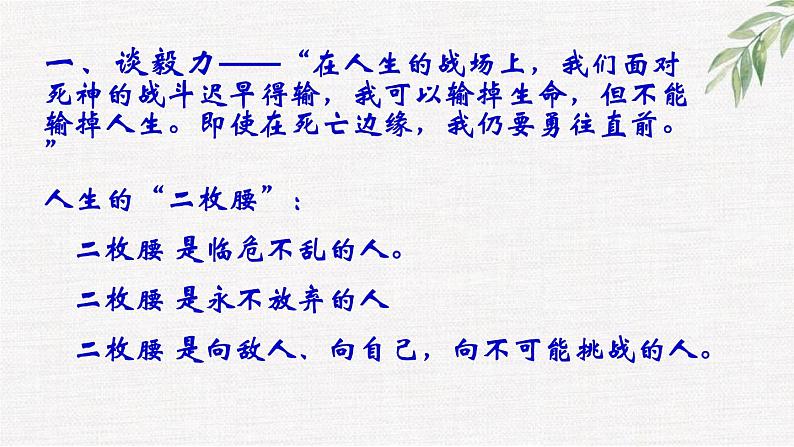 一、谈毅力——“在人生的战场上，我们面对
死神的战斗迟早得输，我可以输掉生命，但不能
输掉人生。即使在死亡边缘，我仍要勇往直前。
”
人生的“二枚腰”：
二枚腰 是临危不乱的人。
二枚腰 是永不放弃的人
二枚腰 是向敌人、向自己，向不可能挑战的人。